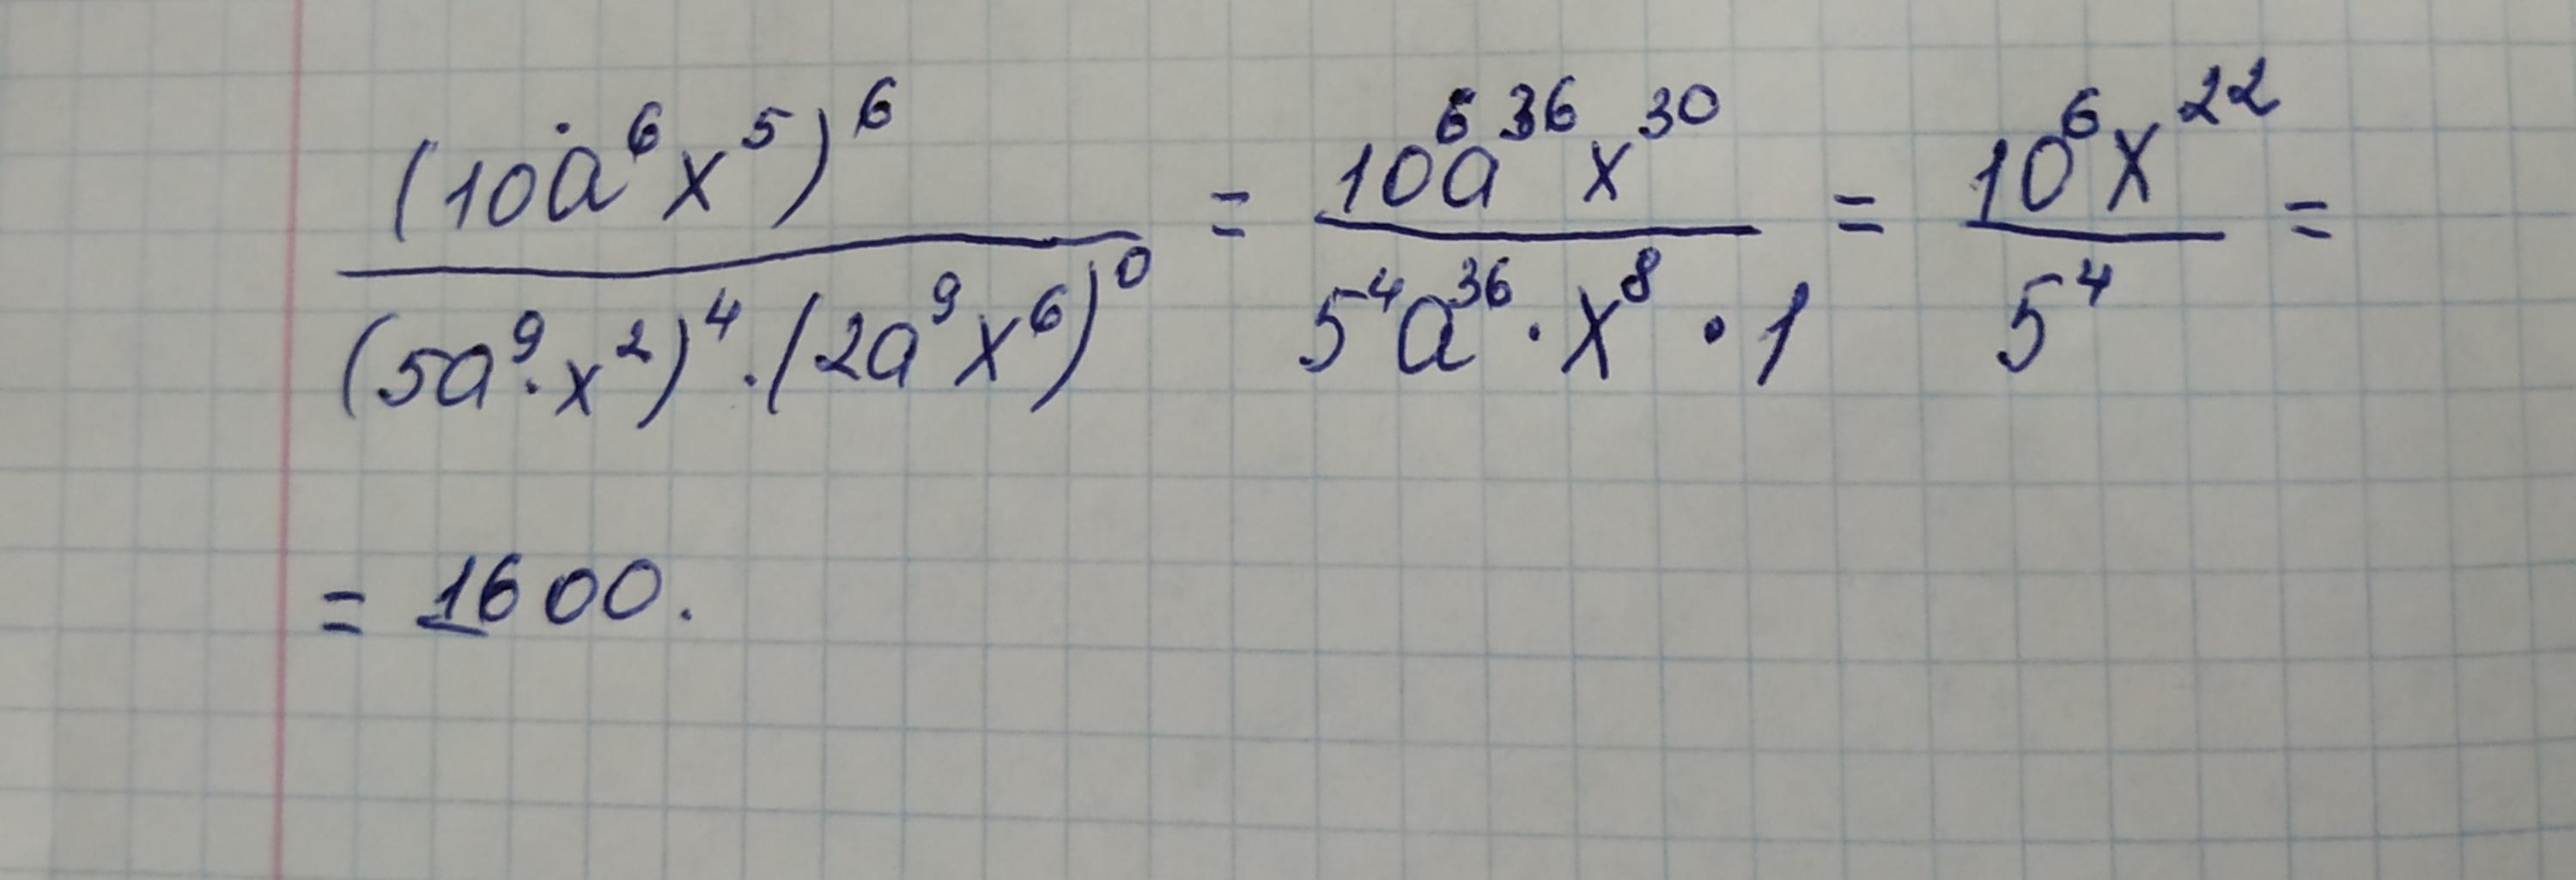 (10a⁶x⁵)⁶ / (5a⁹·x²)⁴·(2a⁹x⁶)⁰ = 10⁶a³⁶x³⁰ / 5⁴a³⁶·x⁸·1 = 10⁶x²² / 5⁴ =
= 1600.